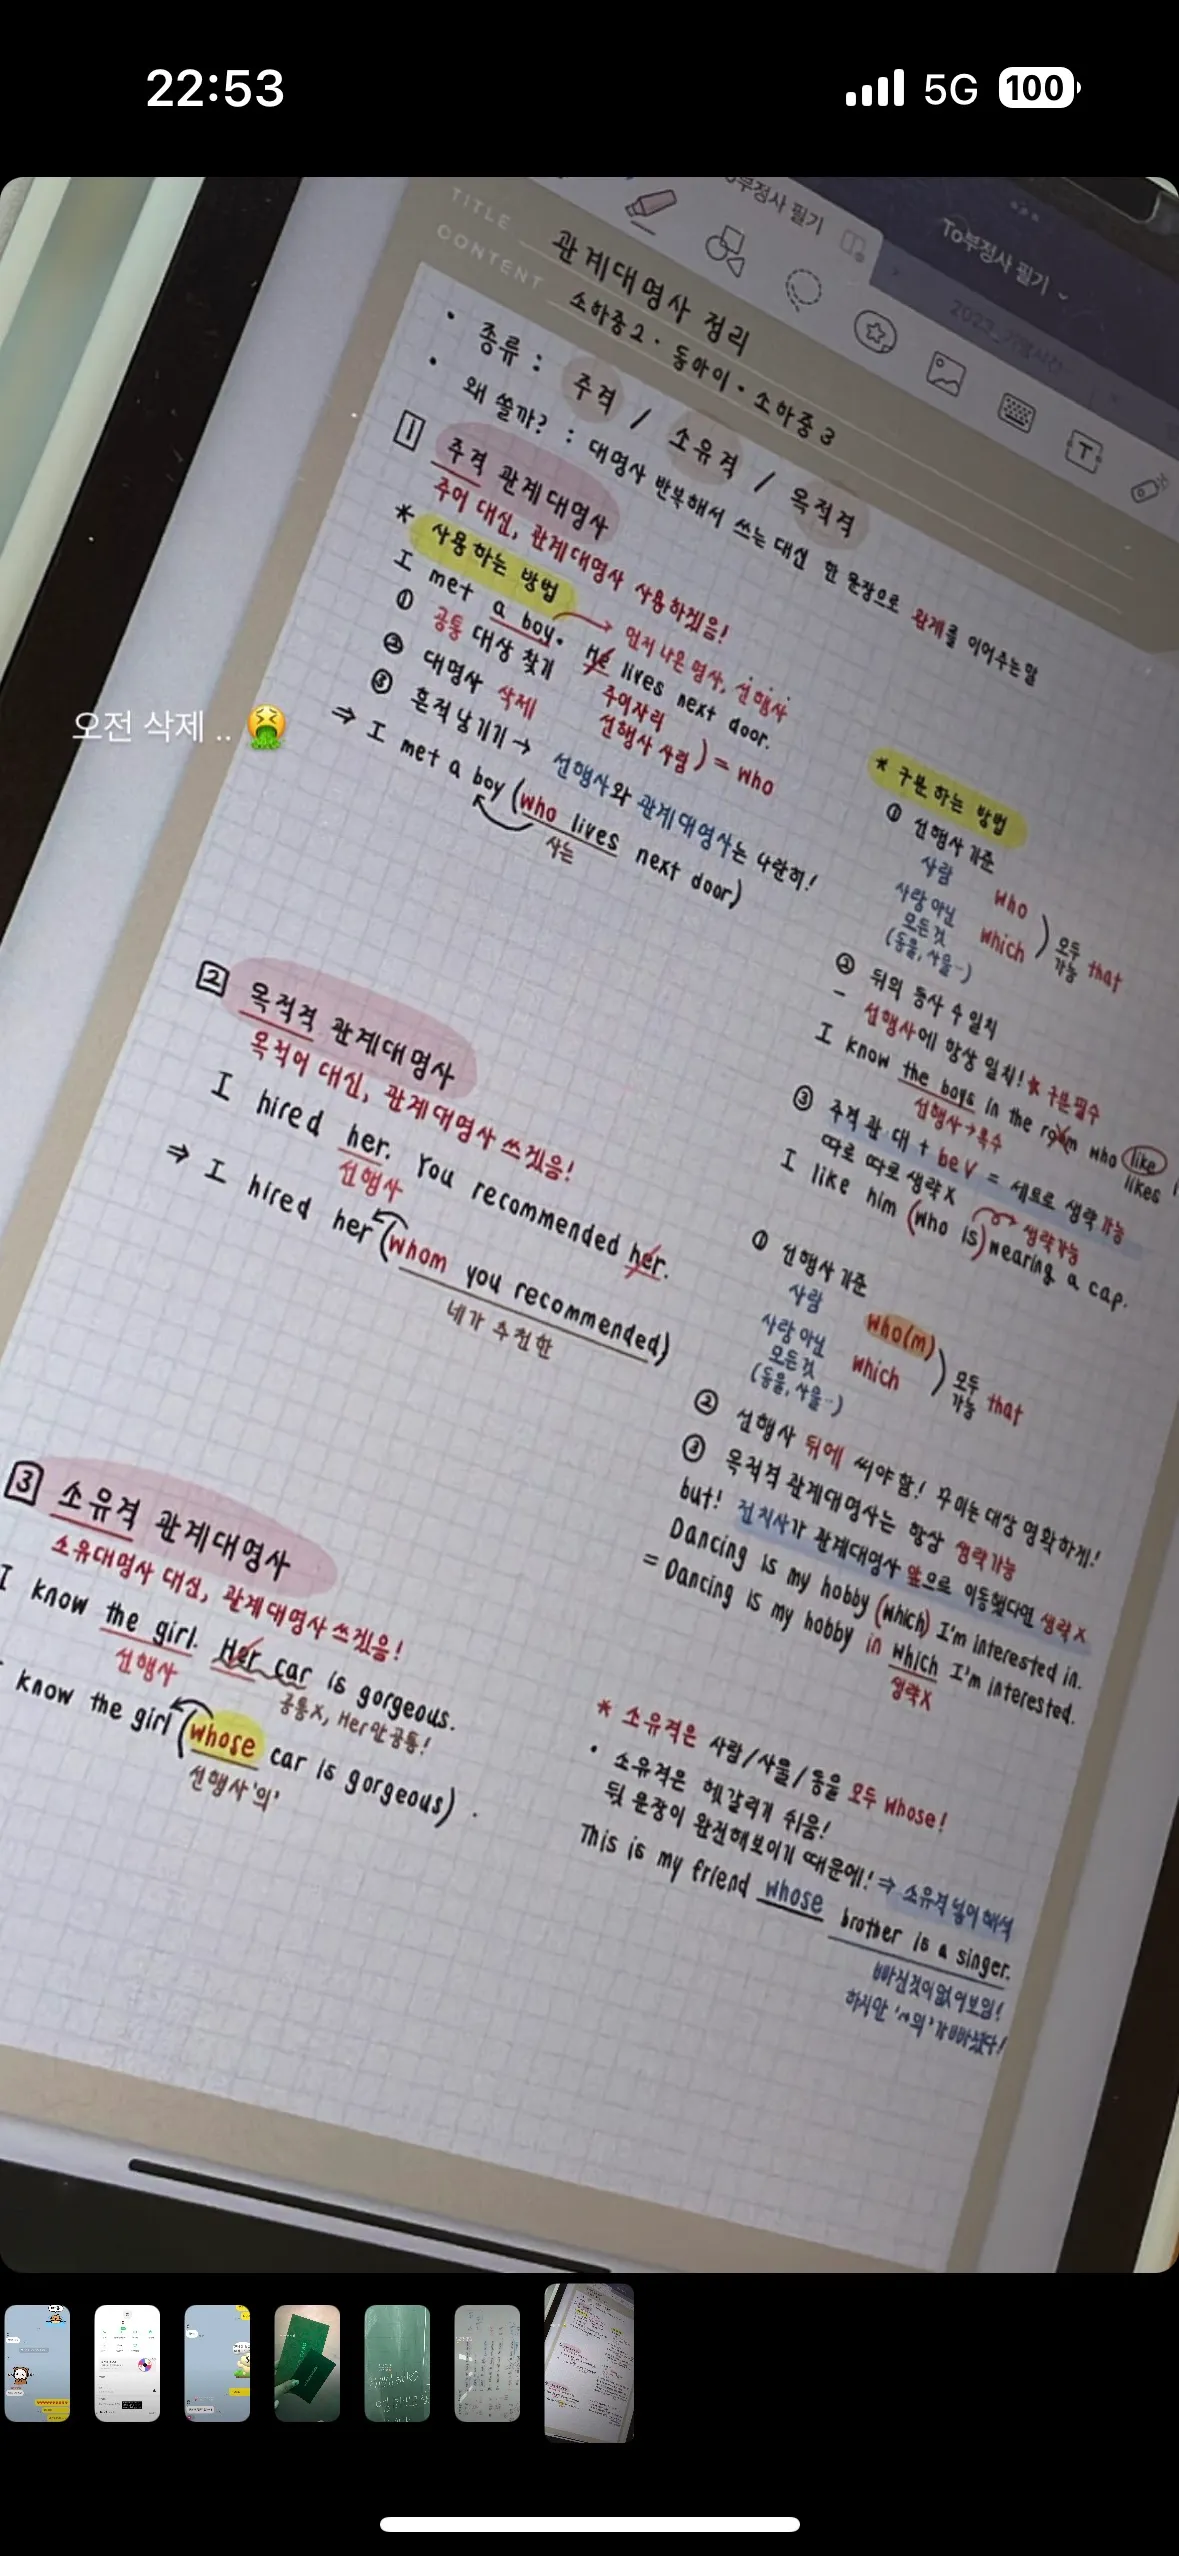 22:53
5G 100
To부정사 필기
TITLE 관계대명사 정리
CONTENT 소하중2 · 동아이 · 소하중3
• 종류 : 주격 / 소유격 / 목적격
• 왜 쓸까? : 대명사 반복해서 쓰는 대신 한 문장으로 관계를 이어주는 말
1 주격 관계대명사
주어 대신, 관계대명사 사용하겠음!
* 사용하는 방법
먼저 나온 명사, 선행사
I met a boy. He lives next door.
① 공통 대상 찾기
주어자리
② 대명사 삭제
선행사 사람 ) = who
③ 흔적 남기기 → 선행사와 관계대명사는 나란히!
⇒ I met a boy (who lives next door)
사는
오전 삭제 .. 🤮
* 구분 하는 방법
① 선행사 기준
사람 who
사람 아닌 모든 것 (동물, 사물…) which
모두 가능 that
② 뒤의 동사 수 일치
- 선행사에 항상 일치! * 구분 필수
I know the boys in the room who like
선행사→복수
likes
③ 주격 관·대 + be V = 세트로 생략 가능
따로 따로 생략 X
생략가능
I like him (who is) wearing a cap.
2 목적격 관계대명사
목적어 대신, 관계대명사 쓰겠음!
I hired her. You recommended her.
선행사
⇒ I hired her (whom you recommended)
네가 추천한
① 선행사 기준
사람 who(m)
사람 아닌 모든 것 (동물, 사물…) which
모두 가능 that
② 선행사 뒤에 써야 함! 꾸미는 대상 명확하게!
③ 목적격 관계대명사는 항상 생략가능
but! 전치사가 관계대명사 앞으로 이동했다면 생략 X
Dancing is my hobby (which) I'm interested in.
= Dancing is my hobby in which I'm interested.
생략X
3 소유격 관계대명사
소유대명사 대신, 관계대명사 쓰겠음!
I know the girl. Her car is gorgeous.
선행사
공통X, Her만 공통!
know the girl (whose car is gorgeous) .
선행사'의'
* 소유격은 사람/사물/동물 모두 whose!
• 소유격은 헷갈리기 쉬움!
뒷 문장이 완전해보이기 때문에! ⇒ 소유격 넣어 해석
This is my friend whose brother is a singer.
빠진것이 없어보임!
하지만 '~의'가 빠졌다!